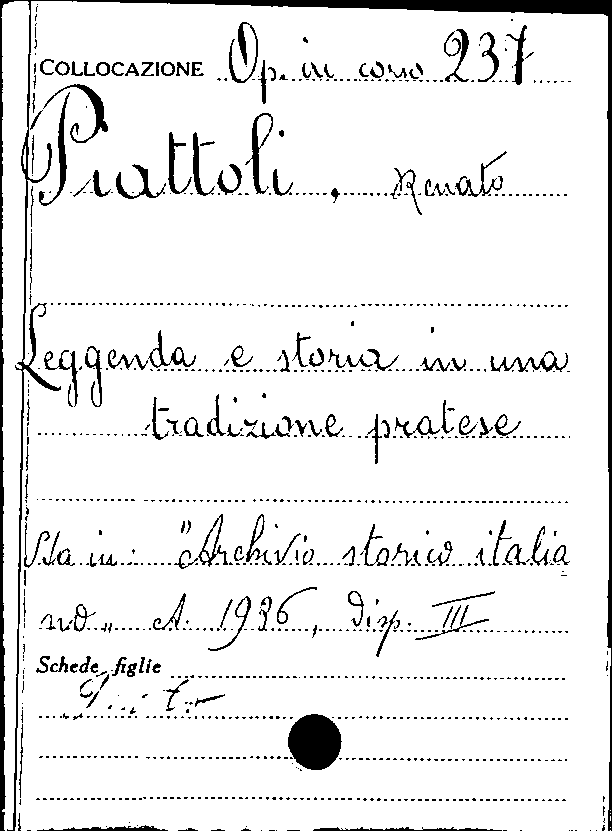 COLLOCAZIONE Op. in corso 237
Piattoli, Renato
Leggenda e storia in una
tradizione pratese
Sta in: "Archivio storico italia
no„ A. 1936, Disp. III
Schede figlie